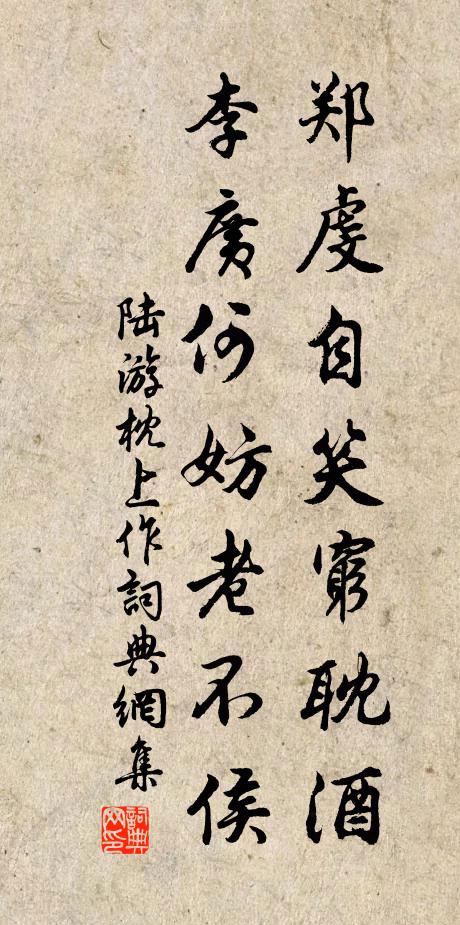 郑虔自笑穷耽酒
李广何妨老不侯
陆游枕上作詞典網集
詞典网印